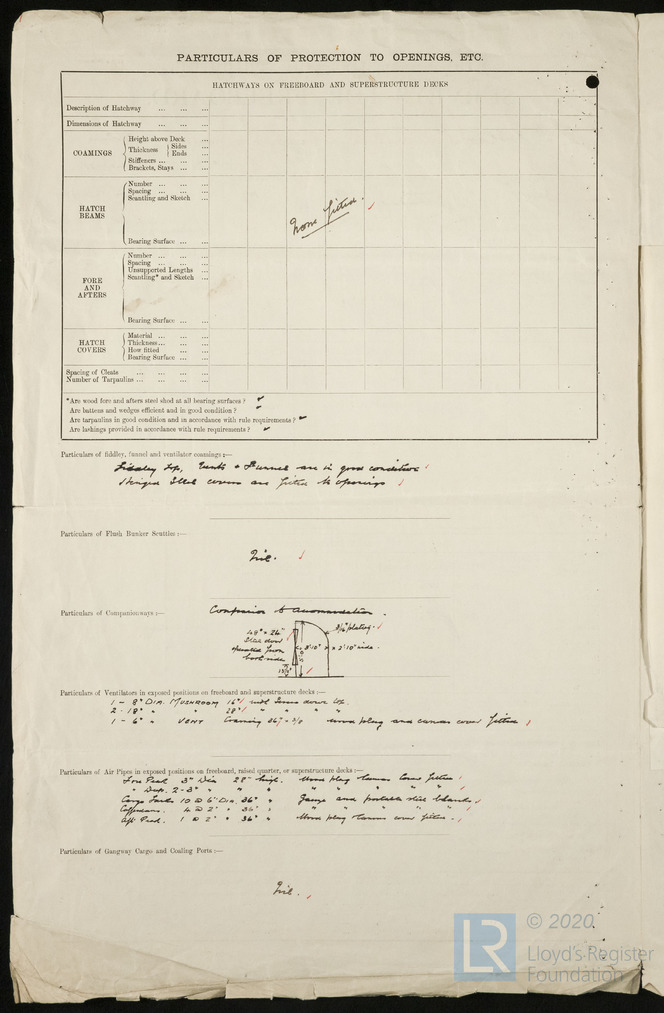 PARTICULARS OF PROTECTION TO OPENINGS, ETC.
HATCHWAYS ON FREEBOARD AND SUPERSTRUCTURE DECKS
Description of Hatchway ... ... ...
Dimensions of Hatchway ... ... ...
COAMINGS
Height above Deck ...
Thickness { Sides ...
Ends ...
Stiffeners ... ... ...
Brackets, Stays ... ...
HATCH BEAMS
Number ... ... ...
Spacing ... ... ...
Scantling and Sketch ...
None fitted.
Bearing Surface ... ...
FORE AND AFTERS
Number ... ... ...
Spacing ... ... ...
Unsupported Lengths ...
Scantling* and Sketch ...
Bearing Surface ... ...
HATCH COVERS
Material ... ... ...
Thickness... ... ...
How fitted ... ...
Bearing Surface ... ...
Spacing of Cleats ... ... ... ...
Number of Tarpaulins ... ... ... ...
*Are wood fore and afters steel shod at all bearing surfaces?
Are battens and wedges efficient and in good condition?
Are tarpaulins in good condition and in accordance with rule requirements?
Are lashings provided in accordance with rule requirements?
Particulars of fiddley, funnel and ventilator coamings :—
Fiddley top, & Funnel are in good condition
Hinged steel covers are fitted to openings
Particulars of Flush Bunker Scuttles :—
Nil.
Particulars of Companionways :—
Companion to accommodation.
48" × 26"
Steel door
operated from
both sides
plating.
3'10" × 2'10" wide.
Particulars of Ventilators in exposed positions on freeboard and superstructure decks :—
1 - 8" DIA. MUSHROOM 16" with screw down top.
2 - 18" " " 28" " " " "
1 - 6" " VENT Coaming 36" wood plug and canvas cover fitted
Particulars of Air Pipes in exposed positions on freeboard, raised quarter, or superstructure decks :—
Fore Peak 3" Dia 28" high. Wood plug canvas cover fitted
" Deep. 2 - 3" " " " " " " " "
Cargo Tanks 10 @ 6" Dia. 36" " Gauze and portable steel blanks
Cofferdams. 4 @ 2" " 36" " " " " " "
Aft Peak. 1 @ 2" " 36" " Wood plug canvas cover fitted.
Particulars of Gangway Cargo and Coaling Ports :—
Nil.
LR
© 2020
Lloyd's Register
Foundation